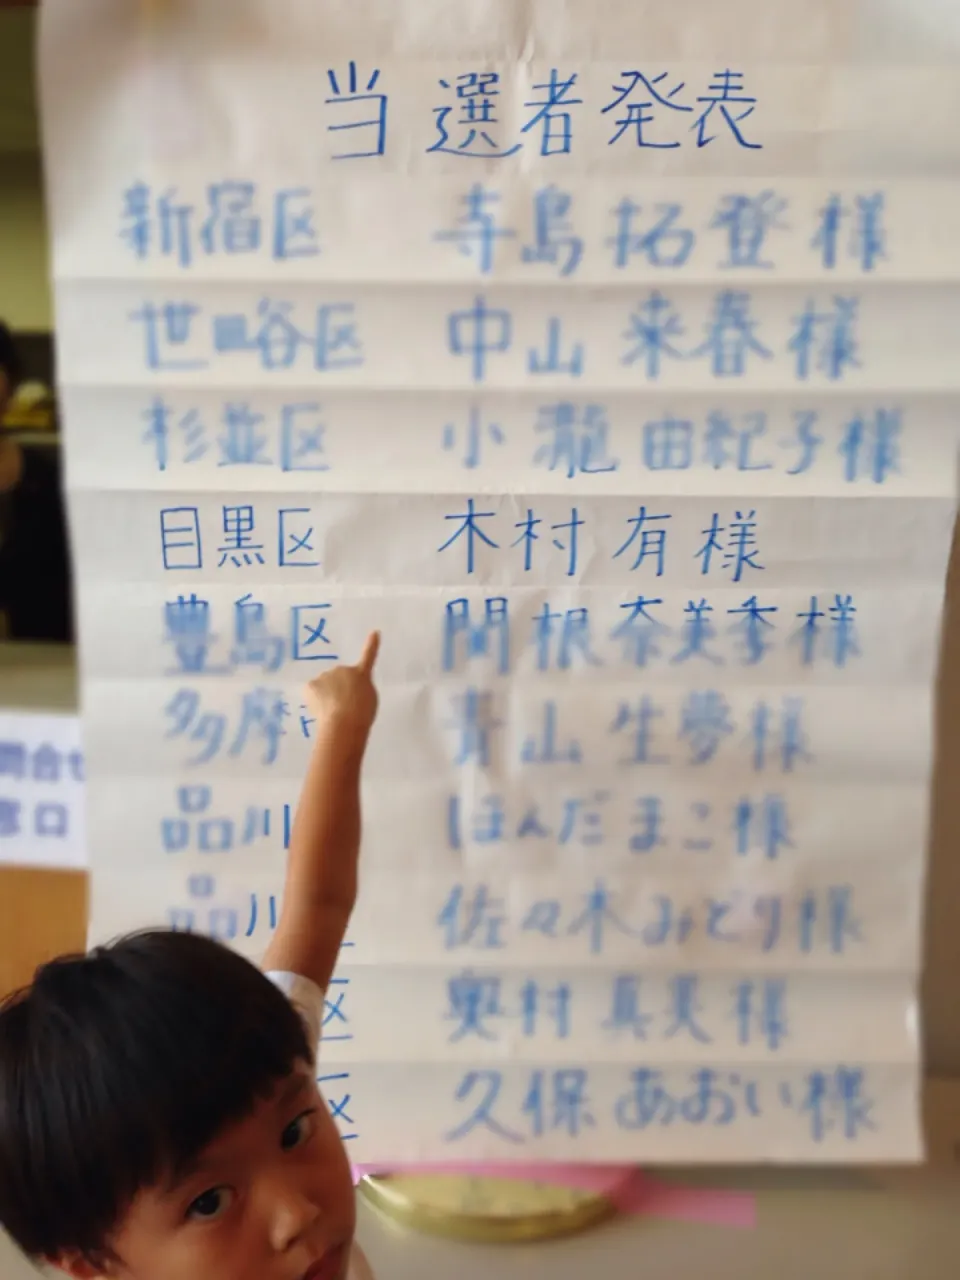 当選者発表
新宿区 寺島拓登様
世田谷区 中山来春様
杉並区 小瀧由紀子様
目黒区 木村有様
豊島区 関根奈美季様
多摩市 青山生夢様
品川 ほんだまこ様
品川 佐々木みどり様
区 奥村真実様
区 久保あおい様
問合せ
窓口